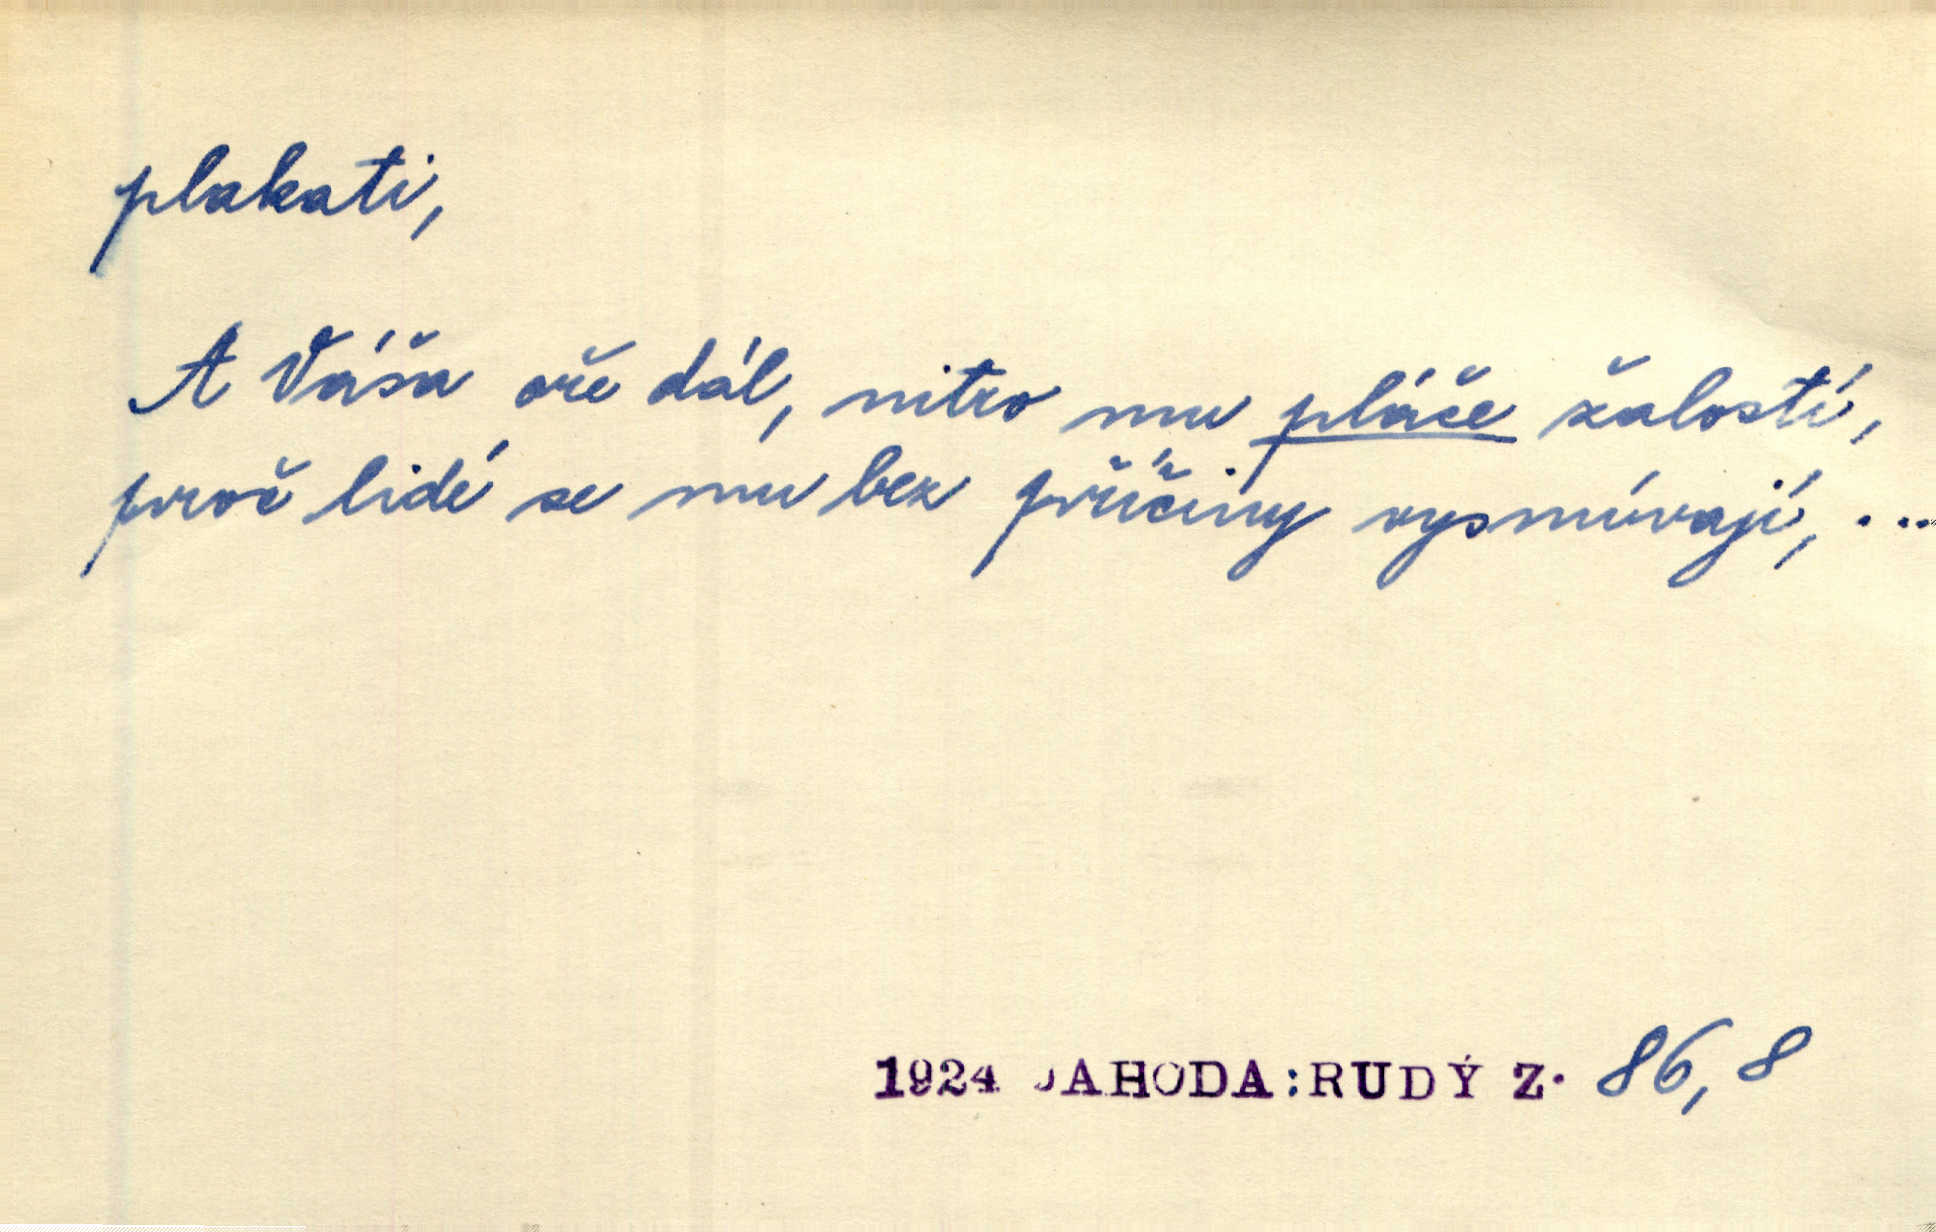 plakati,
A Váša oře dál, nitro mu pláče žalostí,
proč lidé se mu bez příčiny vysmívají, ...
1924 JAHODA:RUDÝ Z. 86,8